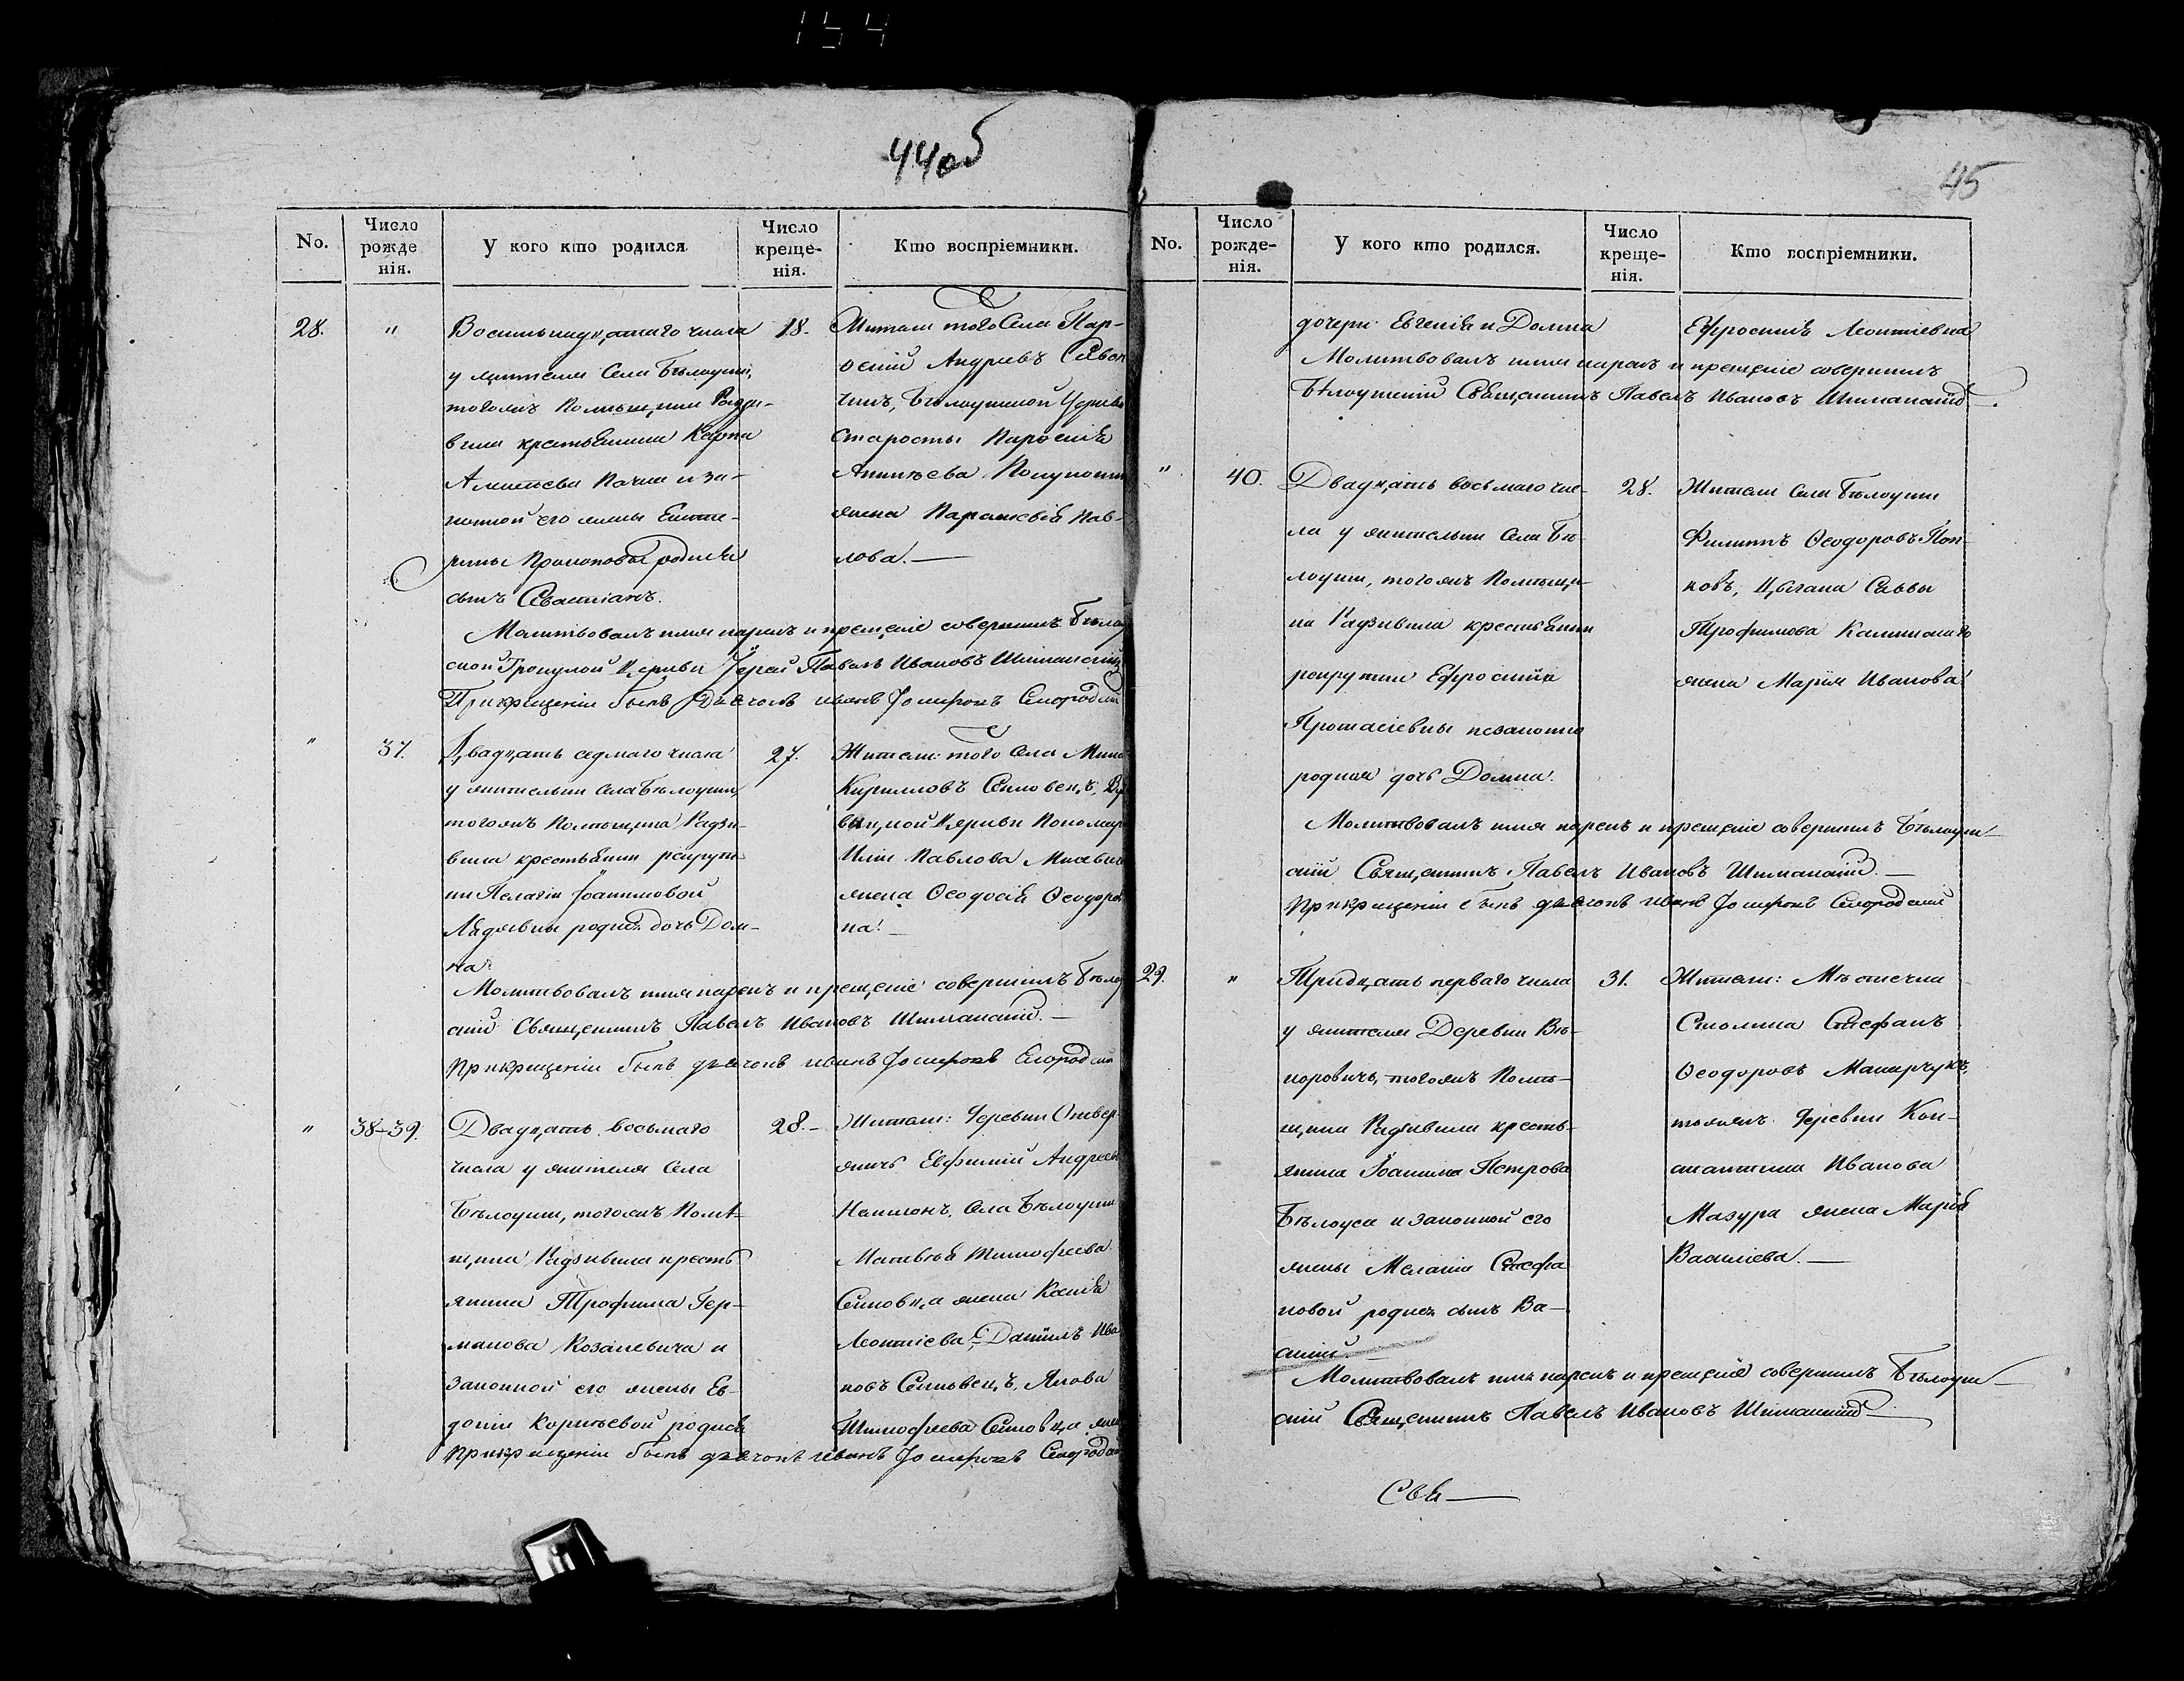 154
44 об
No.
Число рожде нія.
У кого кто родился
Число креще- нія.
Кто воспріемники.
28.
"
Восемьнадцатаго числа
у жителя Села Бѣлоуши,
тогожъ Помѣщика Радзи-
вила крестьянина Карпа
и за-
конной его жены Екате-
рины Прокоповой родился
сынъ Севастіанъ.
18.
Жители того Села Пар-
ѳеній Андреевъ
чикъ, Бѣлоушской Церкви
Старосты Парѳенія
жена Параскевія Пав-
лова.—
Молитвовалъ имя нарекъ и крещеніе совершилъ
Церкви Іерей Павелъ Ивановъ Шиманскій
При крещеніи былъ Дьячокъ Иванъ
"
37.
Двадцать седмаго числа
у жительки Села Бѣлоуши,
тогожъ Помѣщика Радзи-
вила крестьянки рекрут-
ки Пелагіи Іоакимовой
родися дочь Дом-
на
27.
Жители: того Села
Кирилловъ Сыновецъ,
Церкви Пономаря
Иліи Павлова
жена Ѳеодосія Ѳеодоро
на.—
Молитвовалъ имя нарекъ и крещеніе совершилъ Бѣлоу
скій Священникъ Павелъ Ивановъ Шиманскій.—
При крещеніи былъ дьячокъ Иванъ
"
38-39.
Двадцать восьмаго
числа у жителя Села
Бѣлоуши, тогожъ Помѣ-
щика Радзивила кресть
янина Трофима Гер-
манова Козакевича и
законной его жены Ев-
докіи Корнѣевой родися
28.—
Жители: Деревни Отвер-
жичъ Евфимій Андреевъ
Села Бѣлоуши
Матвѣя Тимофеева
Сыновца жена Ксенія
Леонтіева, Даніилъ Ива
новъ Сыновецъ, Якова
Тимофеева Сыновца жена
При крещеніи былъ дьячокъ Иванъ
45
No.
Число рожде- нія.
У кого кто родился.
Число креще- нія.
Кто воспріемники.
дочери Евгенія и Домна
Ефросинія Леонтіевна
Молитвовалъ имя нарекъ и крещеніе совершилъ
Бѣлоушскій Священникъ Павелъ Ивановъ Шиманскій.
"
40.
Двадцать восьмаго чис-
ла у жительки Села Бѣ-
лоуши, тогожъ Помѣщи-
ка Радзивила крестьянки
рекрутки Ефросиніи
Протасіевны незаконно
родися дочь Домна.
28.
Жители Села Бѣлоуши
Филиппъ Ѳеодоровъ Поп-
ковъ, Цыгана Саввы
Трофимова
жена Марія Иванова.
Молитвовалъ имя нарекъ и крещеніе совершилъ Бѣлоуш-
скій Священникъ Павелъ Ивановъ Шиманскій.—
При крещеніи былъ дьячокъ Иванъ
29.
"
Тридцать перваго числа
у жителя Деревни Вѣ-
коровичъ, тогожъ Помѣ-
щика Радзивила кресть-
янина Іоанна Петрова
Бѣлоуса и законной его
жены Меланіи Стефа
новой родися сынъ Ва-
силій.
31.
Жители: Мѣстечка
Столина Стефанъ
Ѳеодоровъ Мацирчукъ,
тояжъ Деревни Кон-
стантина Иванова
Мазура жена Марія
Василіева.—
Молитвовалъ имя нарекъ и крещеніе совершилъ Бѣлоуш-
скій Священникъ Павелъ Ивановъ Шиманскій—
Свя—